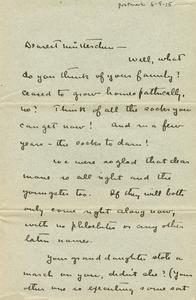 postmark 6-9-15
Dearest Mütterchen —
Well, what
do you think of your family?
Ceased to grow homeopathically,
no? Think of all the socks you
can get now! And in a few
years - the socks to darn!
We were so glad that dear
mama so all right and the
youngster too. If they will both
only come right along now,
with no phlebites or any other
latin names.
Your granddaughter stole a
march on you, didn't she? (Your
other one is executing some sort